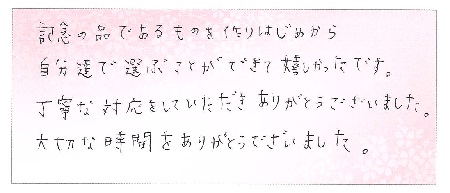 記念の品であるものを作りはじめから
自分達で選ぶことができて嬉しかったです。
丁寧な対応をしていただきありがとうございました。
大切な時間をありがとうございました。